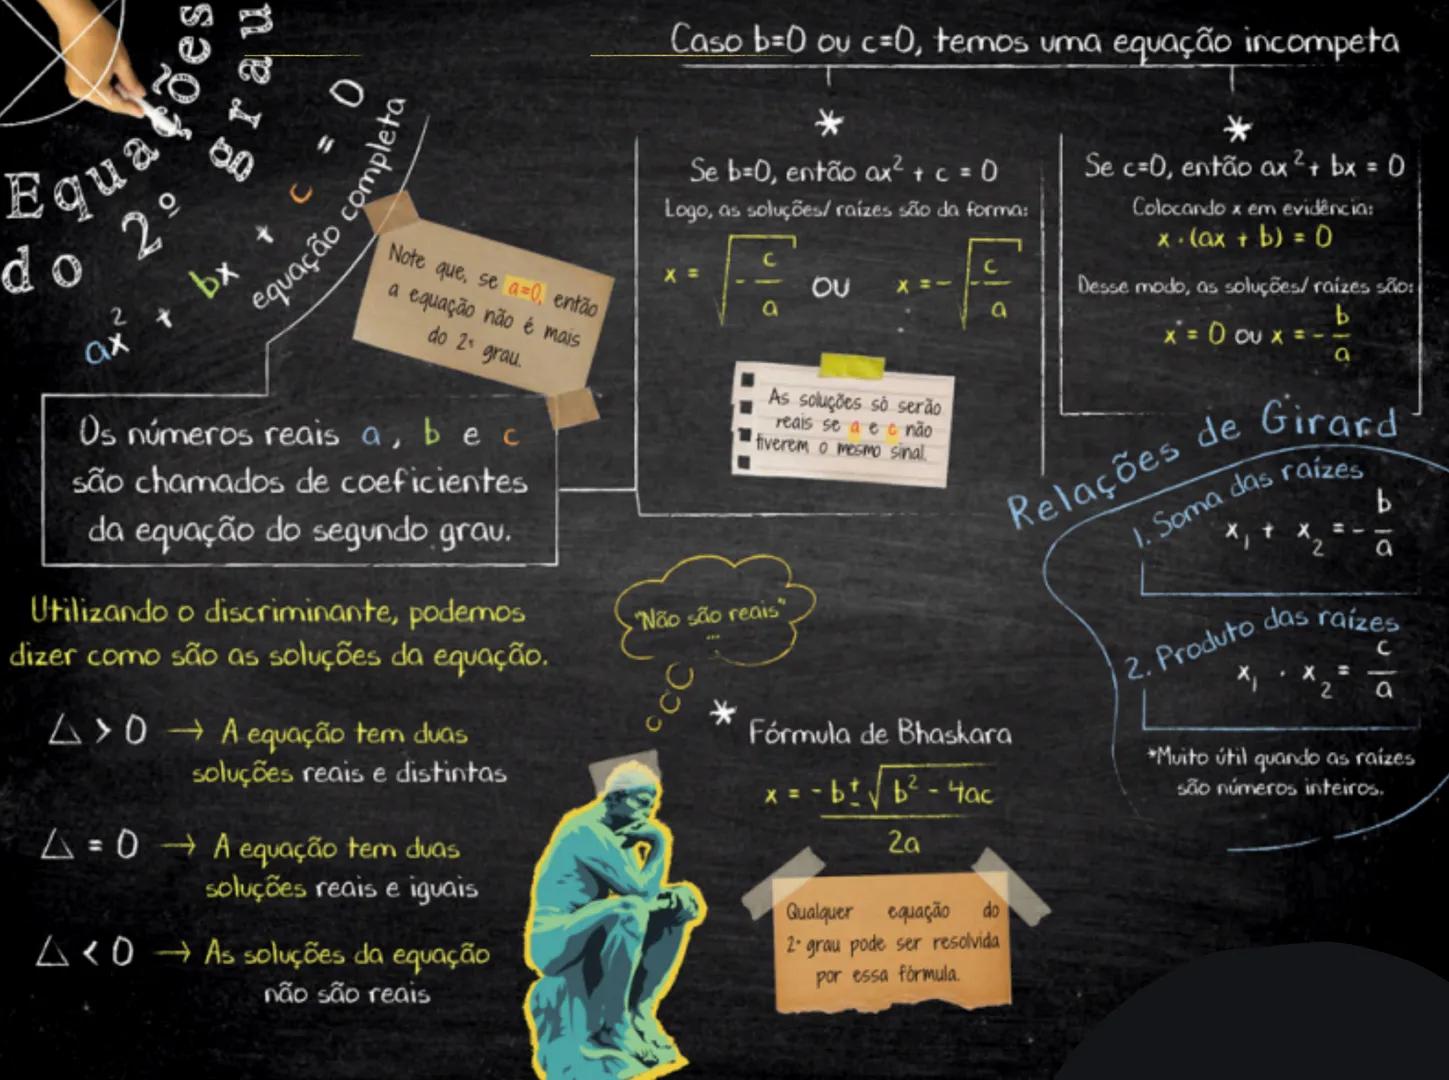 Equações
do 2º grau
ax² + bx + c = 0
equação completa
Note que, se a=0, então
a equação não é mais
do 2º grau.
Os números reais a, b e c
são chamados de coeficientes
da equação do segundo grau.
Caso b=0 ou c=0, temos uma equação incompeta
*
Se b=0, então ax² + c = 0
Logo, as soluções/ raízes são da forma:
x = √(-c/a) ou x = -√(-c/a)
As soluções só serão
reais se a e c não
tiverem o mesmo sinal.
*
Se c=0, então ax² + bx = 0
Colocando x em evidência:
x · (ax + b) = 0
Desse modo, as soluções/ raízes são:
x = 0 ou x = -b/a
Relações de Girard
1. Soma das raízes
x₁ + x₂ = -b/a
2. Produto das raízes
x₁ · x₂ = c/a
*Muito útil quando as raízes
são números inteiros.
Utilizando o discriminante, podemos
dizer como são as soluções da equação.
△ > 0 → A equação tem duas
soluções reais e distintas
△ = 0 → A equação tem duas
soluções reais e iguais
△ < 0 → As soluções da equação
não são reais
"Não são reais"
...
* Fórmula de Bhaskara
x = -b ± √(b² - 4ac)
2a
Qualquer equação do
2º grau pode ser resolvida
por essa fórmula.